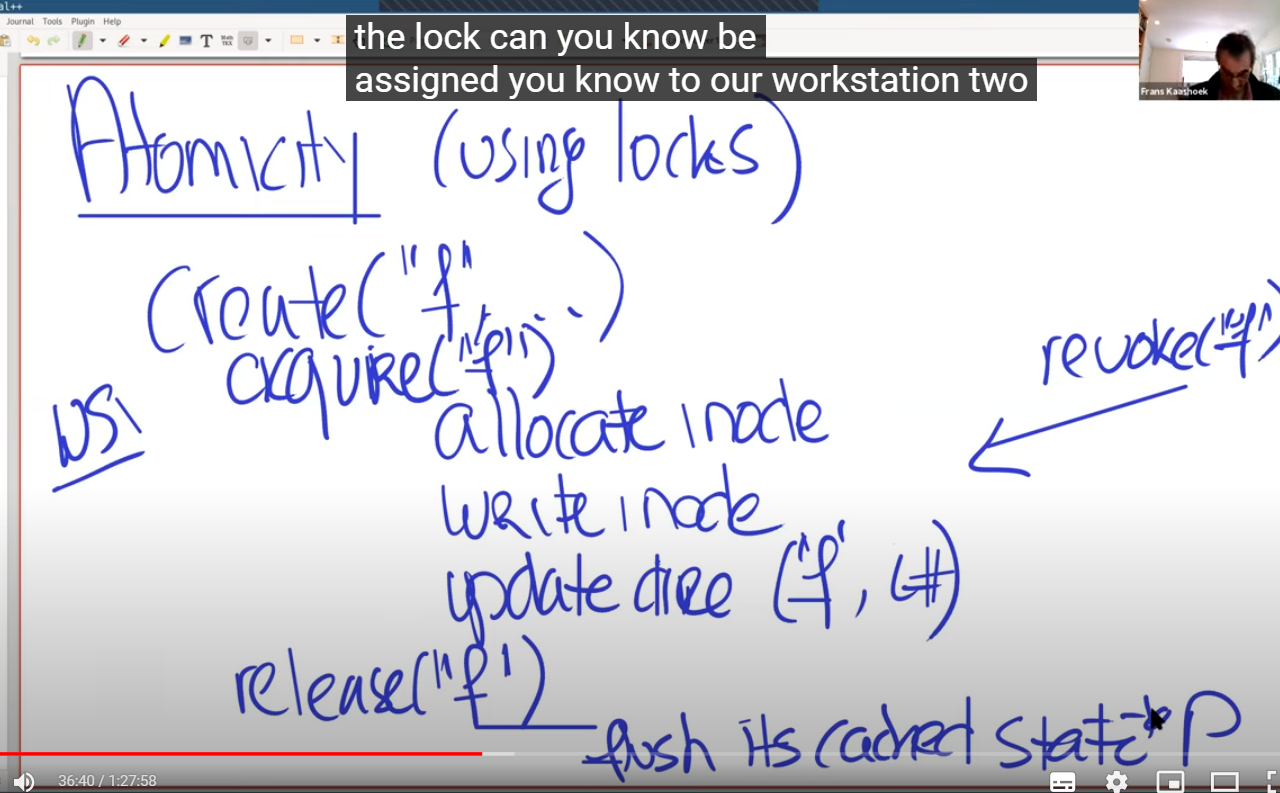 al++
Journal Tools Plugin Help
the lock can you know be
assigned you know to our workstation two
Frans Kaashoek
Atomicity (using locks)
Create("f", ..)
acquire("f")
WS1
allocate inode
write inode
revoke("f")
update dire ("f", i#)
release("f")
flush its cached state to P
36:40 / 1:27:58